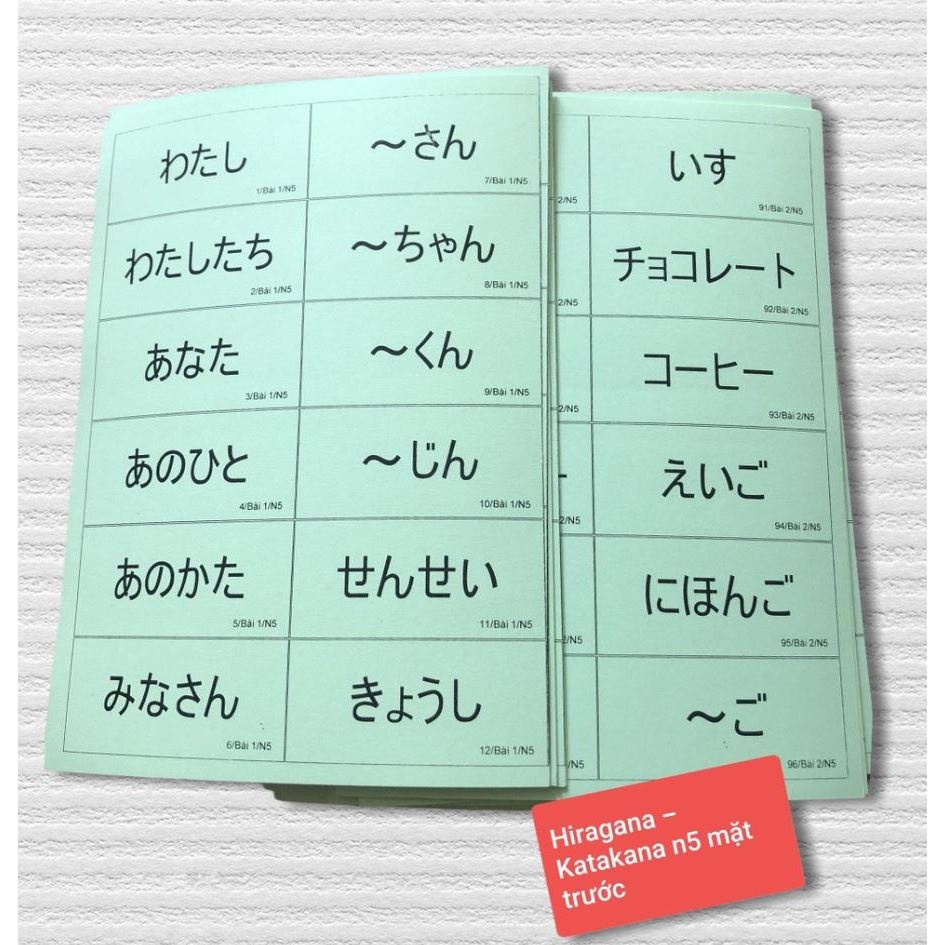 わたし
1/Bài 1/N5
わたしたち
2/Bài 1/N5
あなた
3/Bài 1/N5
あのひと
4/Bài 1/N5
あのかた
5/Bài 1/N5
みなさん
6/Bài 1/N5
～さん
7/Bài 1/N5
～ちゃん
8/Bài 1/N5
～くん
9/Bài 1/N5
～じん
10/Bài 1/N5
せんせい
11/Bài 1/N5
きょうし
12/Bài 1/N5
2/N5
2/N5
2/N5
2/N5
2/N5
/N5
いす
91/Bài 2/N5
チョコレート
92/Bài 2/N5
コーヒー
93/Bài 2/N5
えいご
94/Bài 2/N5
にほんご
95/Bài 2/N5
～ご
96/Bài 2/N5
Hiragana –
Katakana n5 mặt
trước